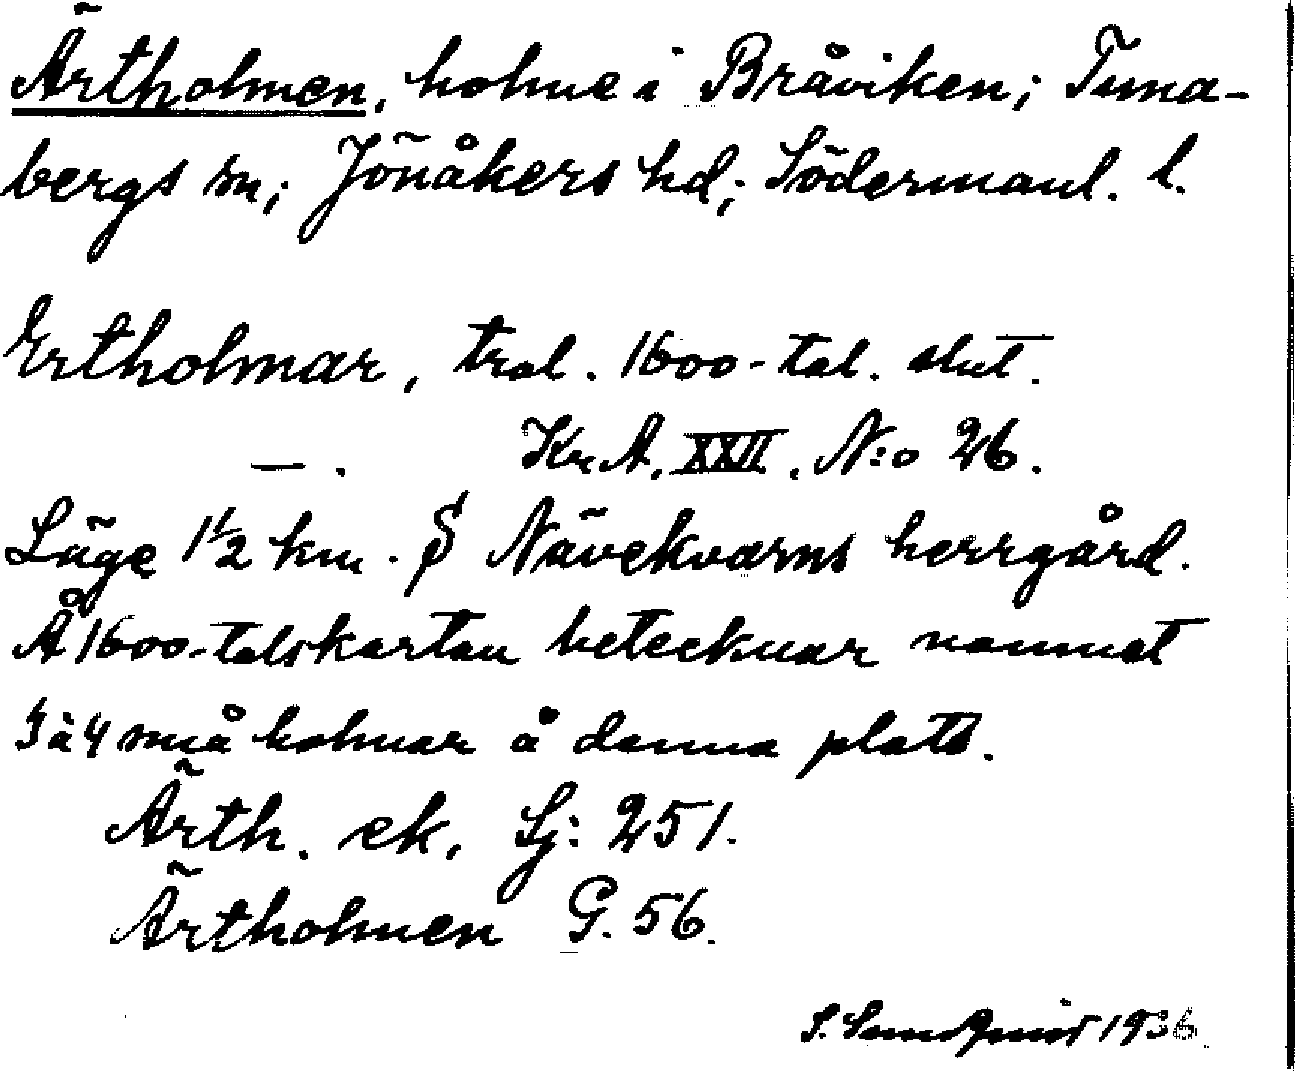 Ärtholmen, holme i Bråviken; Tuna-
bergs sn; Jönåkers hd; Södermanl. l.
Ertholmar, trol. 1600-tal. slut.
— . Kr. A. XXII. N:o 26.
Läge 1½ km. S Nävekvarns herrgård.
Å 1600-talskartan betecknar namnet
3 à 4 små holmar å denna plats.
Ärth. ek. Sj: 251.
Ärtholmen G. 56.
S. Sundqvist 1936.